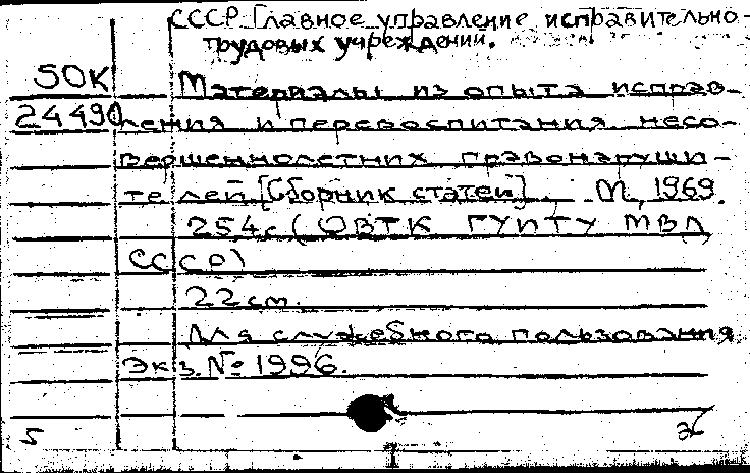 СССР. Главное управление исправительно-
трудовых учреждении.
SOK Материалы из опыта исправ-
24490 ления и перевоспитания несо-
вершеннолетних правонаруши-
телей [Сборник статей]. М, 1969.
254с (ОВТК ГУИТУ МВД
СССР)
22 см.
Для служебного пользования
Экз. № 1996.
5